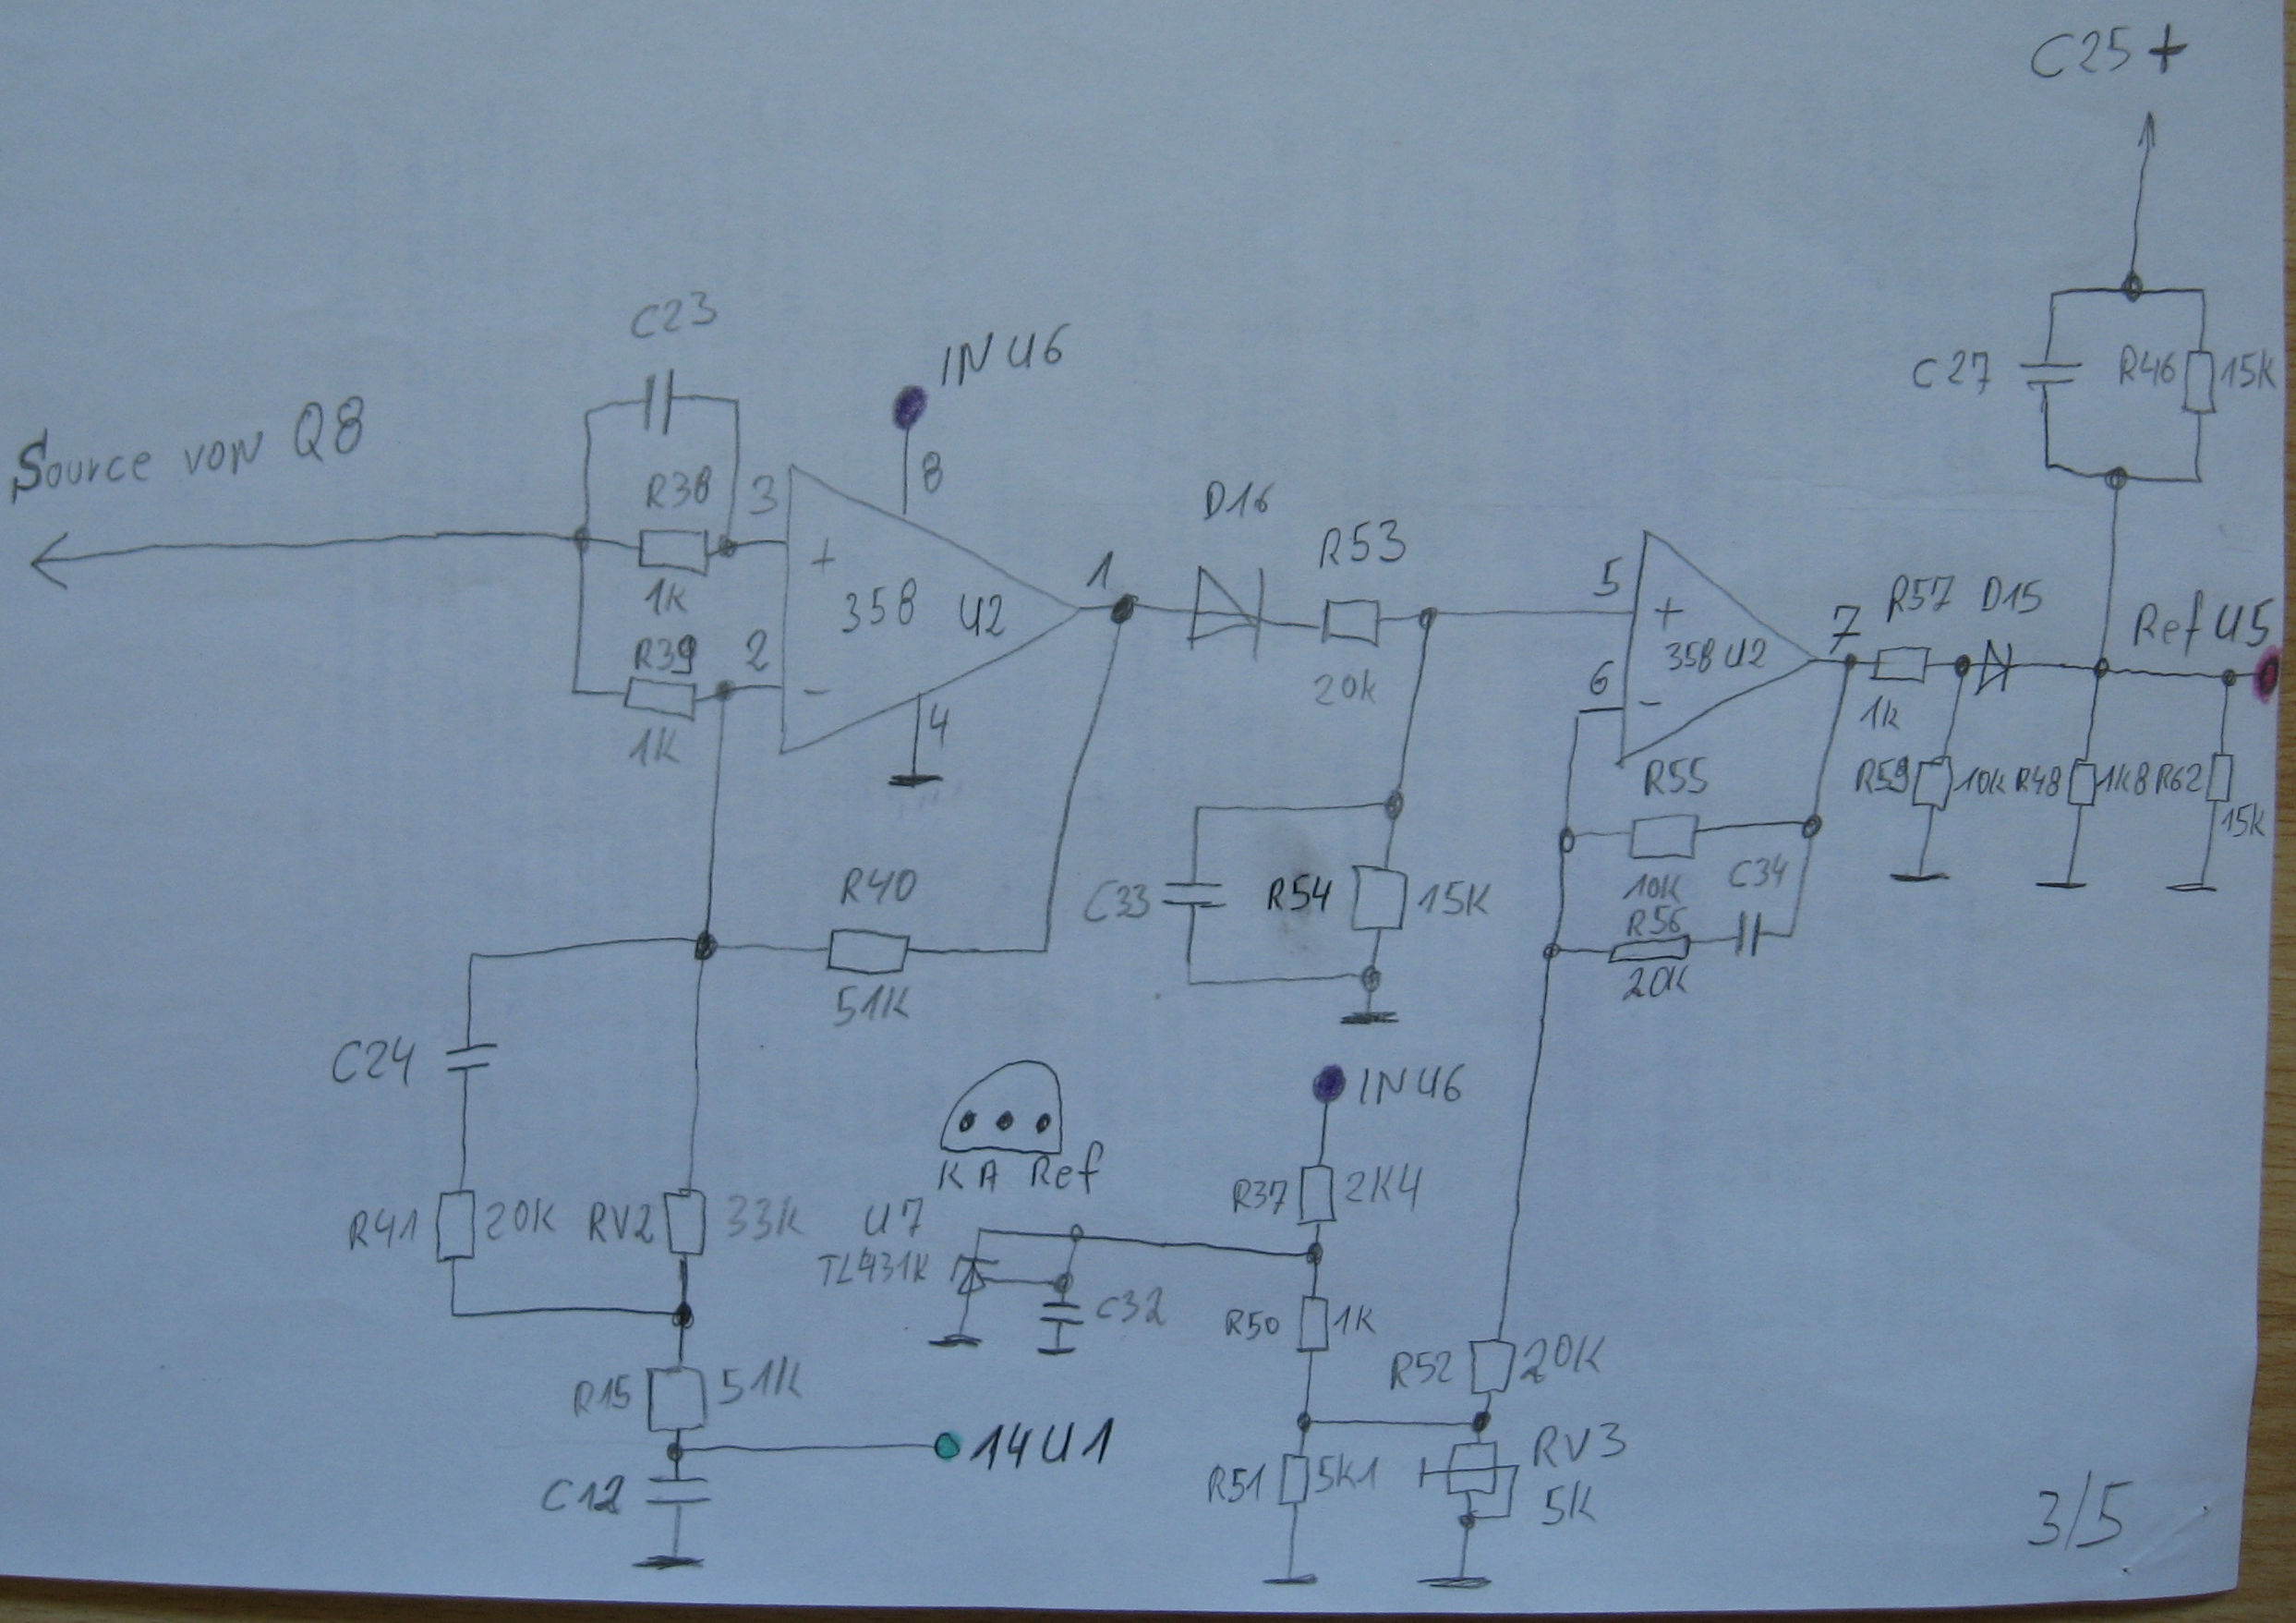 C25 +
C23
IN U6
Source von Q8
R38
3
8
1K
R39
2
1K
+
-
358 U2
4
1
D16
R53
20K
5
6
+
-
358 U2
7
R57
1K
D15
Ref U5
C27
R46
15K
R59
10K
R48
1K8
R62
15K
R55
10K
C34
R56
20K
C33
R54
15K
R40
51K
C24
R41
20K
RV2
33K
K A Ref
U7
TL431K
C32
IN U6
R37
2K4
R50
1K
R52
20K
R15
51K
14U1
C12
R51
5K1
RV3
5K
3/5